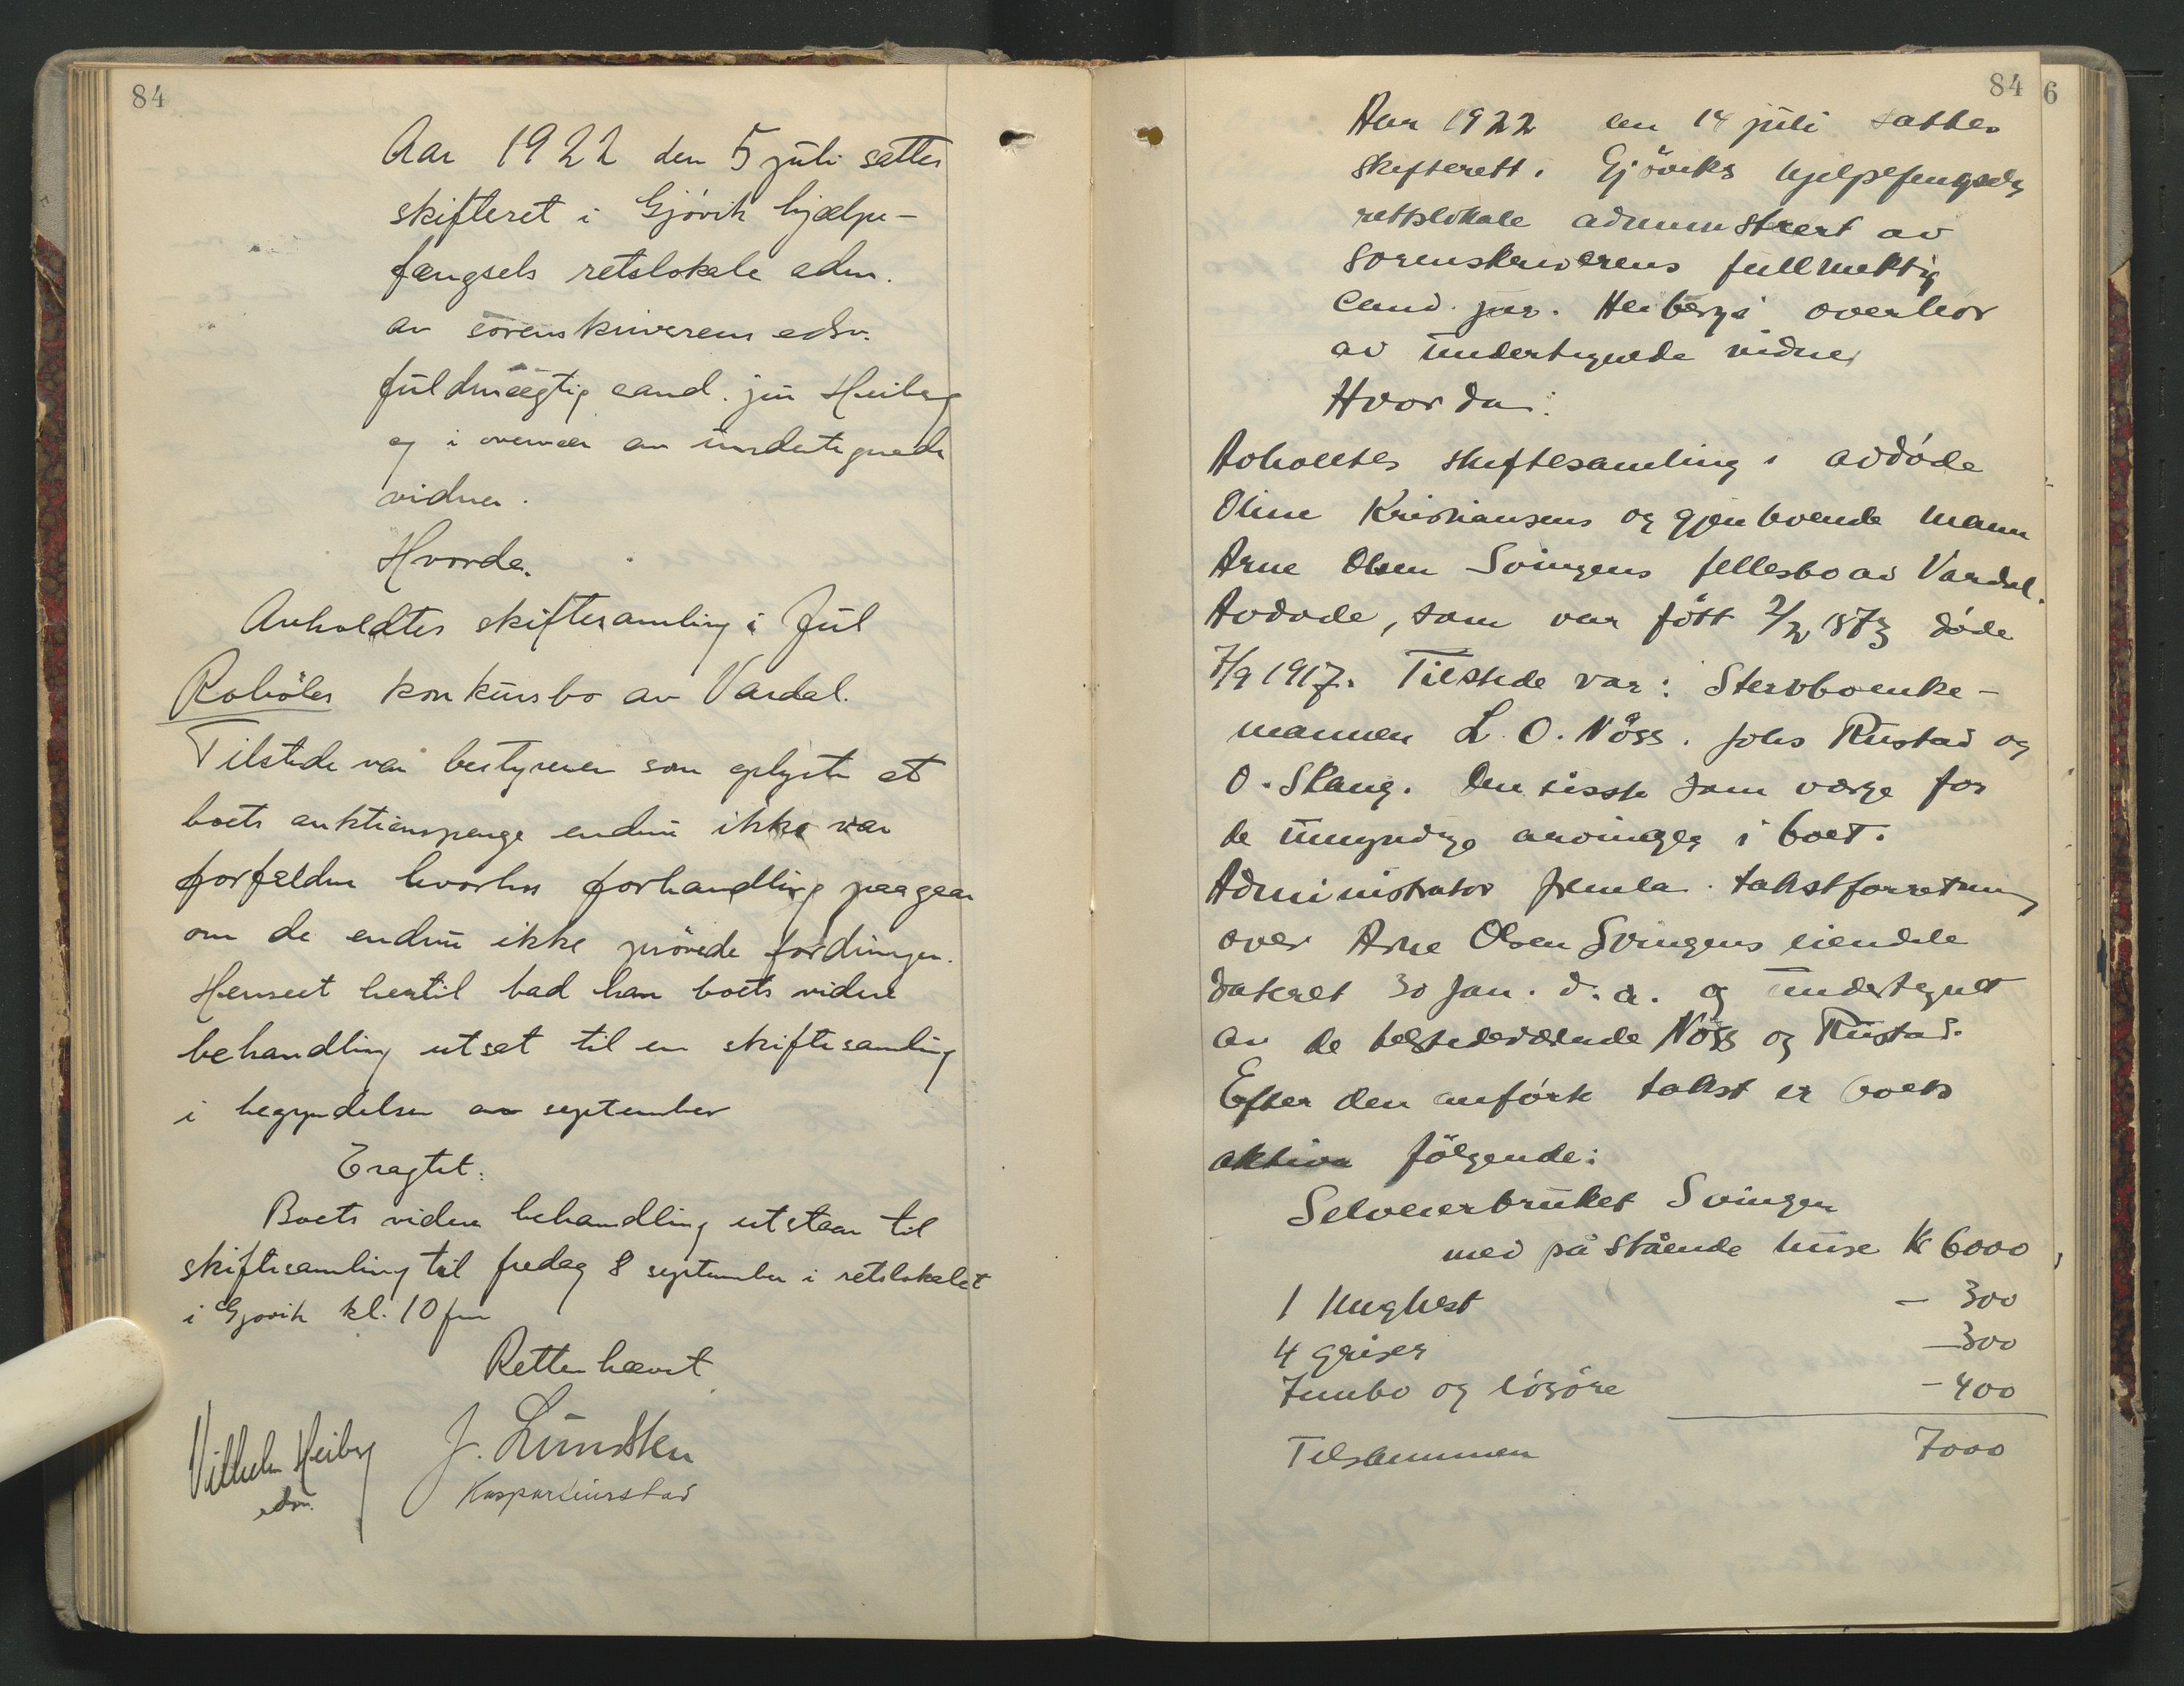 84
Aar 1922 den 5 juli sattes
skifteret i Gjøvik hjælpe-
fængsels retslokale adm.
av sorenskriverens edsv.
fuldmægtig cand. jur Heiberg
og i overvær av undertegnede
vidner.
Hvorda.
Avholdtes skiftesamling i Jul
Roholes konkursbo av Vardal.
Tilstede var bestyreren som oplyste at
boets auktionspenge endnu ikke var
forfaldne hvorhos forhandling paagaar
om de endnu ikke prövede fordringer.
Henseet hertil bad han boets videre
behandling utsat til en skiftesamling
i begyndelsen av september
Eragtet:
Boets videre behandling utstaar til
skiftesamling til fredag 8 september i retslokalet
i Gjøvik kl. 10 fm
Retten hævet
Vilhelm Heiberg
edsv.
J. Lundsten
84
6
Aar 1922 den 14 juli sattes
skifterett i Gjöviks hjelpefengsels
rettslokale administrert av
sorenskriverens fullmektig
cand. jur. Heiberg i overhör
av undertegnede vidner
Hvorda:
Avholdtes skiftesamling i avdöde
Oline Kristiansens og gjenlevende mann
Arne Olsen Svingens fellesbo av Vardal.
Avdöde, som var født 2/2 1873 döde
7/9 1917. Tilstede var: Stervboenke-
mannen L. O. Nöss. Johs Rustad og
O. Stang. Den sisste som verge for
de umyndige arvinger i boet.
Administrator fremla takstforretning
over Arne Olsen Svingens eiendele
dateret 30 Jan. d. a. og undertegnet
av de tilstedeværende Nöss og Rustad.
Efter den anförte takst er boets
aktiva fölgende:
Selveierbruket Svingen
med på stående huse Kr 6000
1 unghest — 300
4 griser — 300
Innbo og lösöre — 400
Tilsammen 7000